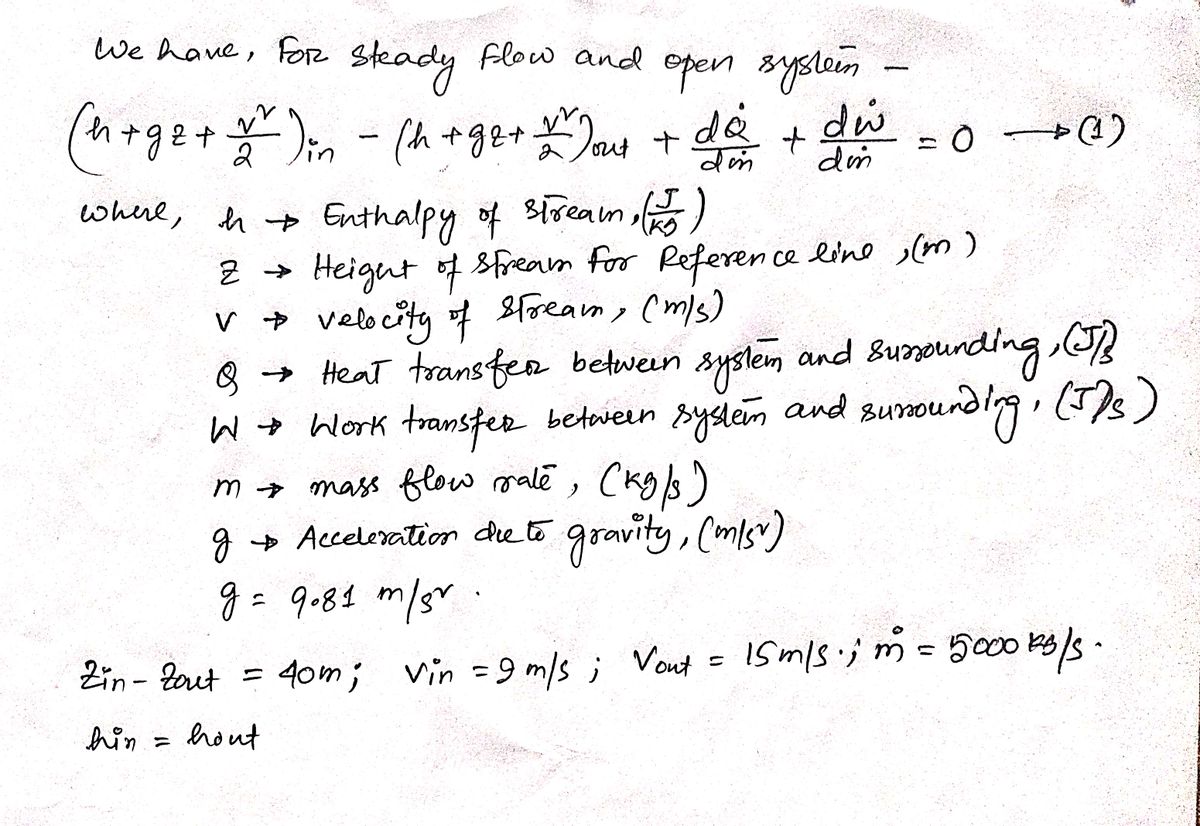 We have, For steady flow and open system –
(h + gz + v²/2)in - (h + gz + v²/2)out + dQ̇/dṁ + dẇ/dṁ = 0 → (1)
where, h → Enthalpy of stream, (J/kg)
z → Height of stream for Reference line, (m)
v → velocity of stream, (m/s)
Q → Heat transfer between system and surrounding, (J/s)
W → Work transfer between system and surrounding, (J/s)
m → mass flow rate, (kg/s)
g → Acceleration due to gravity, (m/s²)
g = 9.81 m/s².
Zin - Zout = 40m; Vin = 9 m/s; Vout = 15m/s.; ṁ = 5000 kg/s.
hin = hout